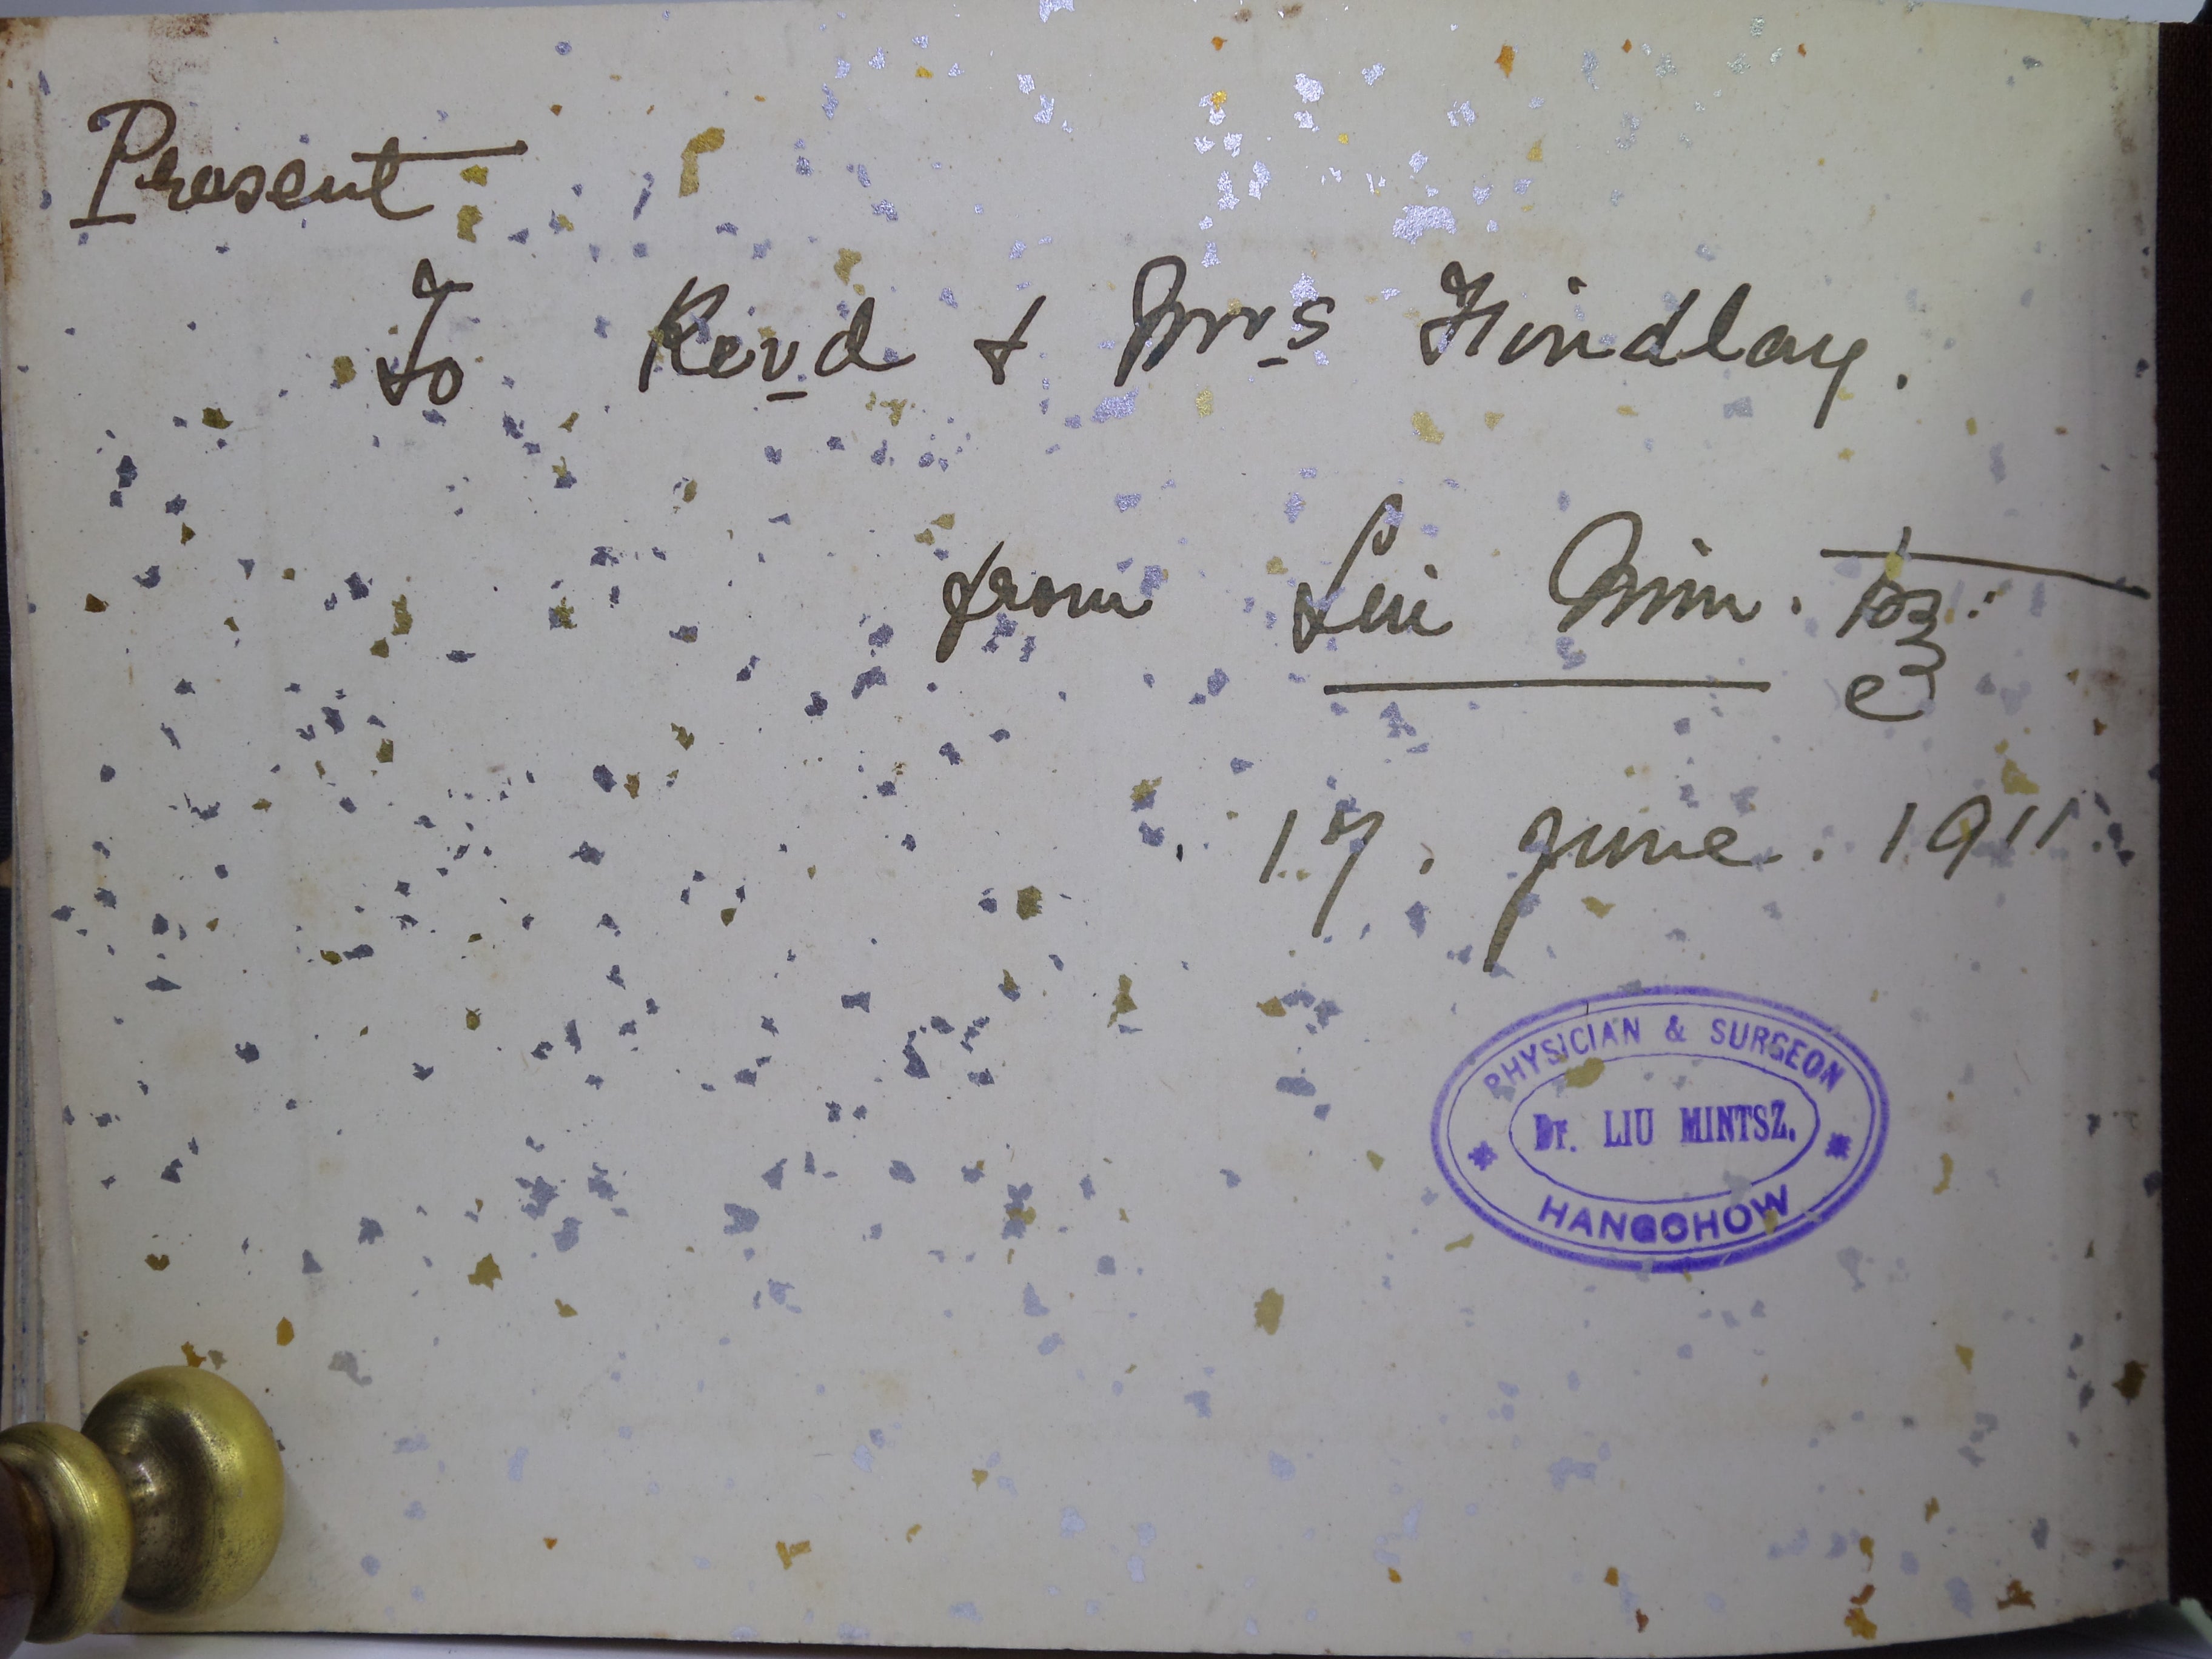 Present
To Revd & Mrs Findlay.
from Liu Min. Tsz.
17. June. 1911.
PHYSICIAN & SURGEON
Dr. LIU MINTSZ.
HANGCHOW